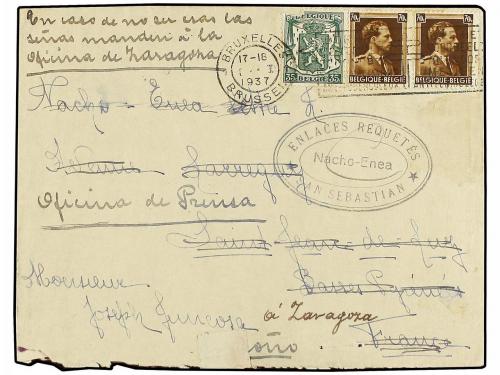 En caso de no ser esas las
señas manden à la
Oficina de Zaragoza
BRUXELLES
17-18
I
1937
BRUSSEL
BELGIQUE
35 35
BELGIË
70c
BELGIQUE-BELGIË
70c
BELGIQUE-BELGIË
Nacho-Enea
ENLACES REQUETÉS
Nacho-Enea
SAN SEBASTIAN
Oficina de Prensa
Saint Jean-de-Luz
Basses Pyrénées
Monsieur
Joseph
á Zaragoza
France
oño